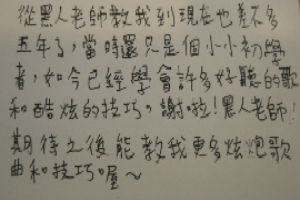 從黑人老師教我到現在也差不多
五年了，當時還只是個小小初學
者，如今已經學會許多好聽的歌
和酷炫的技巧，謝啦！黑人老師！
期待之後能教我更多炫炮歌
曲和技巧喔～